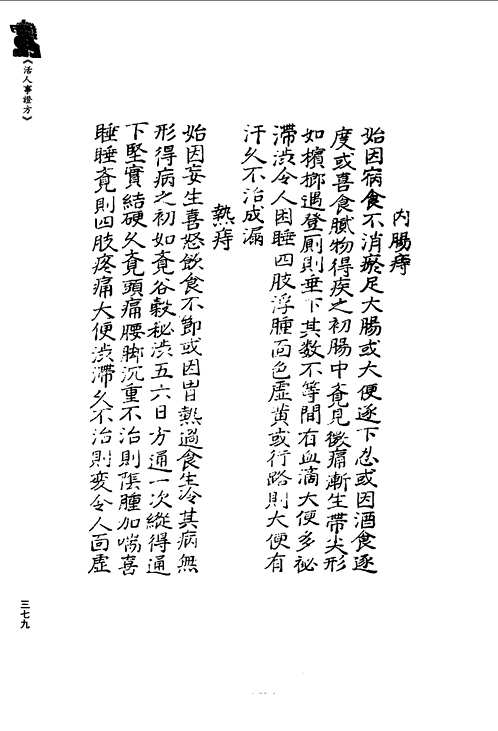 《活人事證方》
內腸痔
始因病食不消瘀足大腸或大便逐下忍或因酒食逐
度或喜食膩物得疾之初腸中覔見微痛漸生帶尖形
如檳榔遇登厠則垂下其数不等間有血滴大便多祕
滯涉令人因睡四肢浮腫面色虛黄或行路則大便有
汗久不治成漏
熱痔
始因妄生喜怒飲食不節或因胃熱過食生冷其病無
形得病之初如覔谷穀秘涉五六日方通一次縱得通
下堅實結硬久覔頭痛腰脚沉重不治則陰腫加喘喜
睡睡覔則四肢疼痛大便涉滯久不治則变令人面虛
三七九